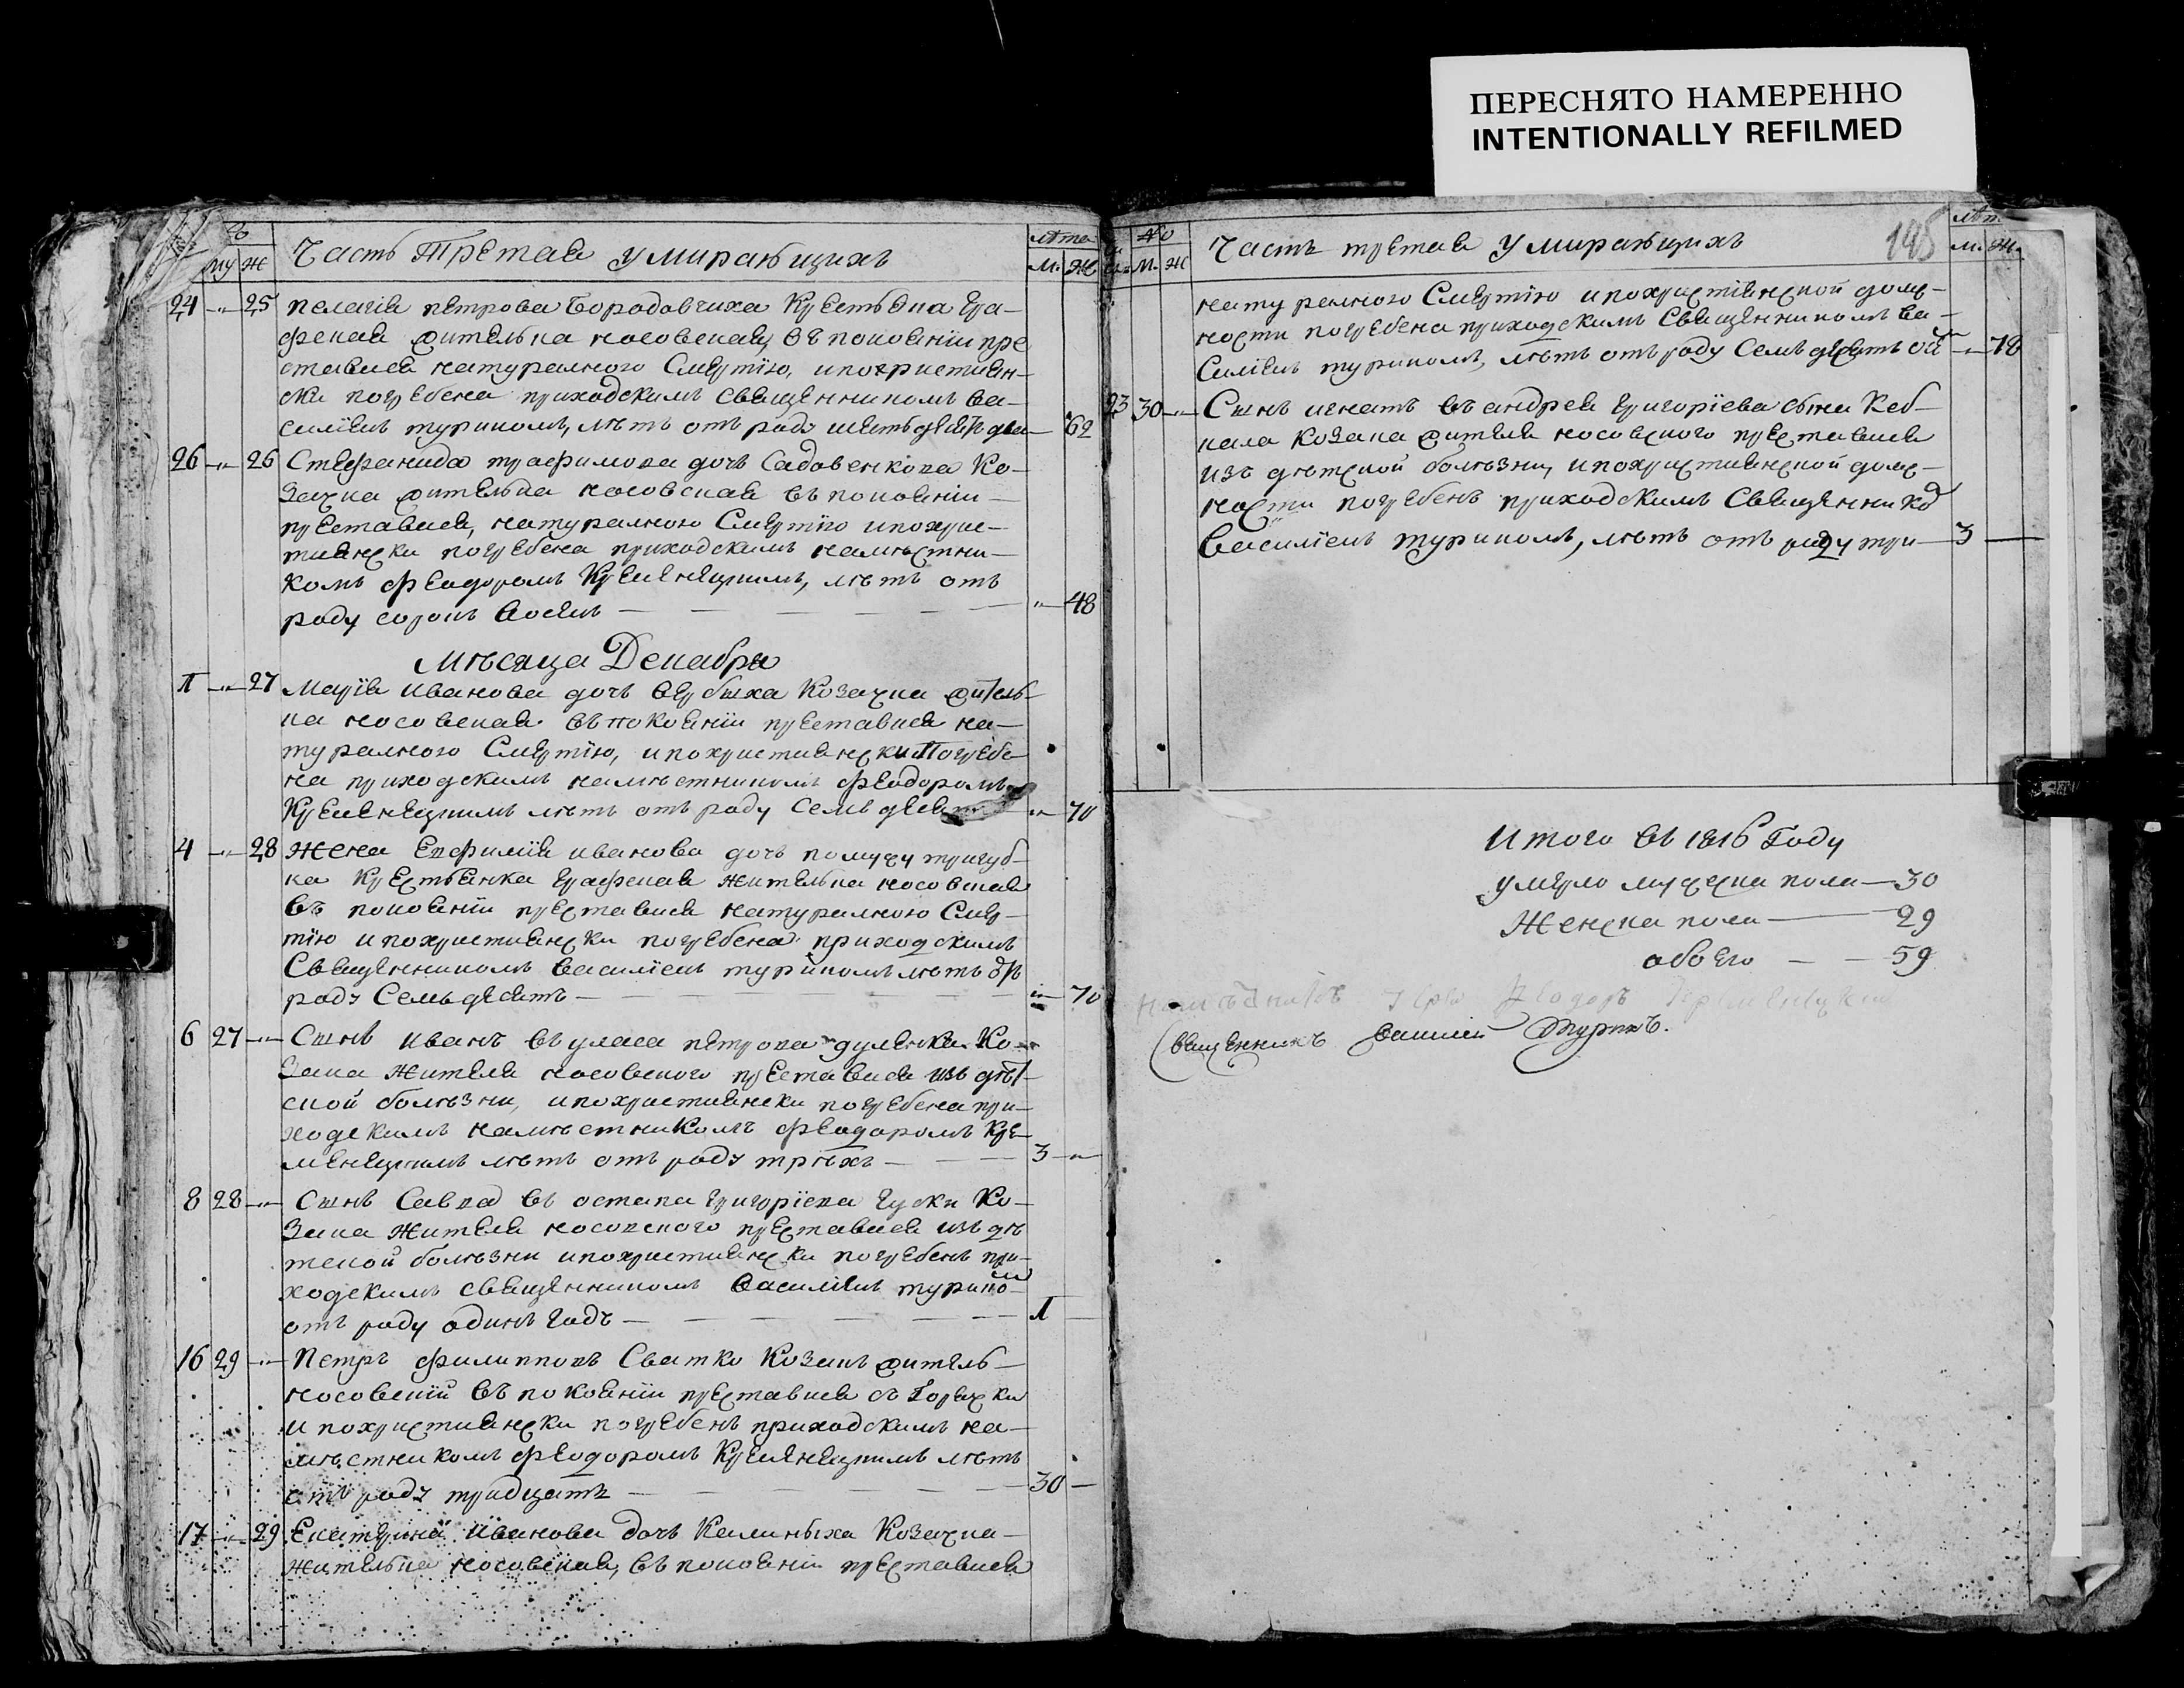 ПЕРЕСНЯТО НАМЕРЕННО
INTENTIONALLY REFILMED
Часть Третая умирающихъ
лѣта
му ж
м. ж
24 25 пелагія петрова Бородавчиха Крестьянка Гра-
фская жителька носовская, въ покоянїи пре
ставися натуралною Смертїю, и похристиян-
ски погребена приходскимъ священникомъ ва-
силїемъ туриномъ, лѣтъ отъ роду шестьдесятъ два 62
26 26 Стефанида трофимова дочь Садовенкова Ко-
зачка жителька носовская въ покоянїи
преставися, натуралною Смертїю и похрис-
тиянски погребена приходскимъ намѣстни-
комъ феодоромъ Кременецкимъ, лѣтъ отъ
роду сорокъ восемъ 48
Мѣсяца Декабря
1 27 Марїя иванова дочь вербыха Козачка житель-
ка носовская въ покоянїи преставися на-
туралною Смертїю, и похристиянски погребе
на приходскимъ намѣстникомъ феодоромъ
Кременецкимъ лѣтъ отъ роду Семъдесят 70
4 28 Жена Евфимїя иванова дочь по мужу тригуб-
ка Крестьянка Графская жителька носовская
въ покоянїи преставися натуралною Смер-
тїю и похристиянски погребена приходскимъ
Священникомъ василїемъ туриномъ лѣтъ отъ
роду Семьдесятъ 70
6 27 Сынъ иванъ въ уласа петрова дуленка Ко-
зака жителя носовского преставися изъ дѣт-
ской болѣзни, и похристиянски погребена при-
ходскимъ намѣстникомъ феодоромъ Кре-
менецкимъ лѣтъ отъ роду трѣхъ 3
8 28 Сынъ Савва въ остапа григорїева гуски Ко-
зака жителя носовского преставися изъ дѣ
тской болѣзни и похристиянски погребенъ при-
ходскимъ священникомъ Василїемъ турино м
отъ роду одинъ годъ 1
16 29 Петръ филипповъ Святко Козакъ житель
носовский въ покоянїи преставися съ Горячки
и похристиянски погребенъ приходскимъ на-
мѣстникомъ феодоромъ Кременецкимъ лѣтъ
отъ роду тридцать 30
17 29 Екатерина иванова дочь Калиныха Козачка
жителька носовская, въ покоянїи преставися
№
м. ж
Часть третая умирающихъ
145
лѣта
м. ж.
натуралною Смертїю и похристїянской долж-
ности погребена приходскимъ Священникомъ ва-
силїемъ туриномъ, лѣтъ отъ роду Семъдесятъ 78
23 30 Сынъ игнатъ въ андрея григорїева сына Кеб-
кала козака жителя носовского преставися
изъ дѣтской болѣзни, и похристиянской долж-
ности погребенъ приходскимъ Священнико
Василїемъ туриномъ, лѣтъ отъ роду три 3
Итого въ 1816 Году
умерло мужеска пола 30
Женска пола 29
обоего 59
Намѣстникъ Іерей Феодоръ Кременецкий
Священникъ Василий Туринъ.